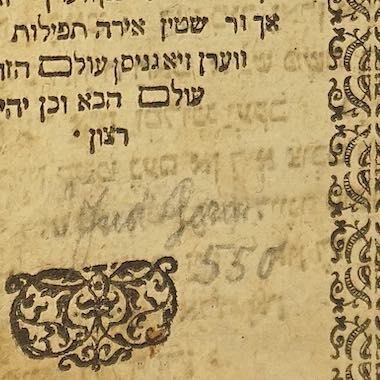 אך ור שטין אירה תפילות
ווערן זיא גניסן עולם הזה
עולם הבא וכן יהי
רצון
Jud. Germ.
550